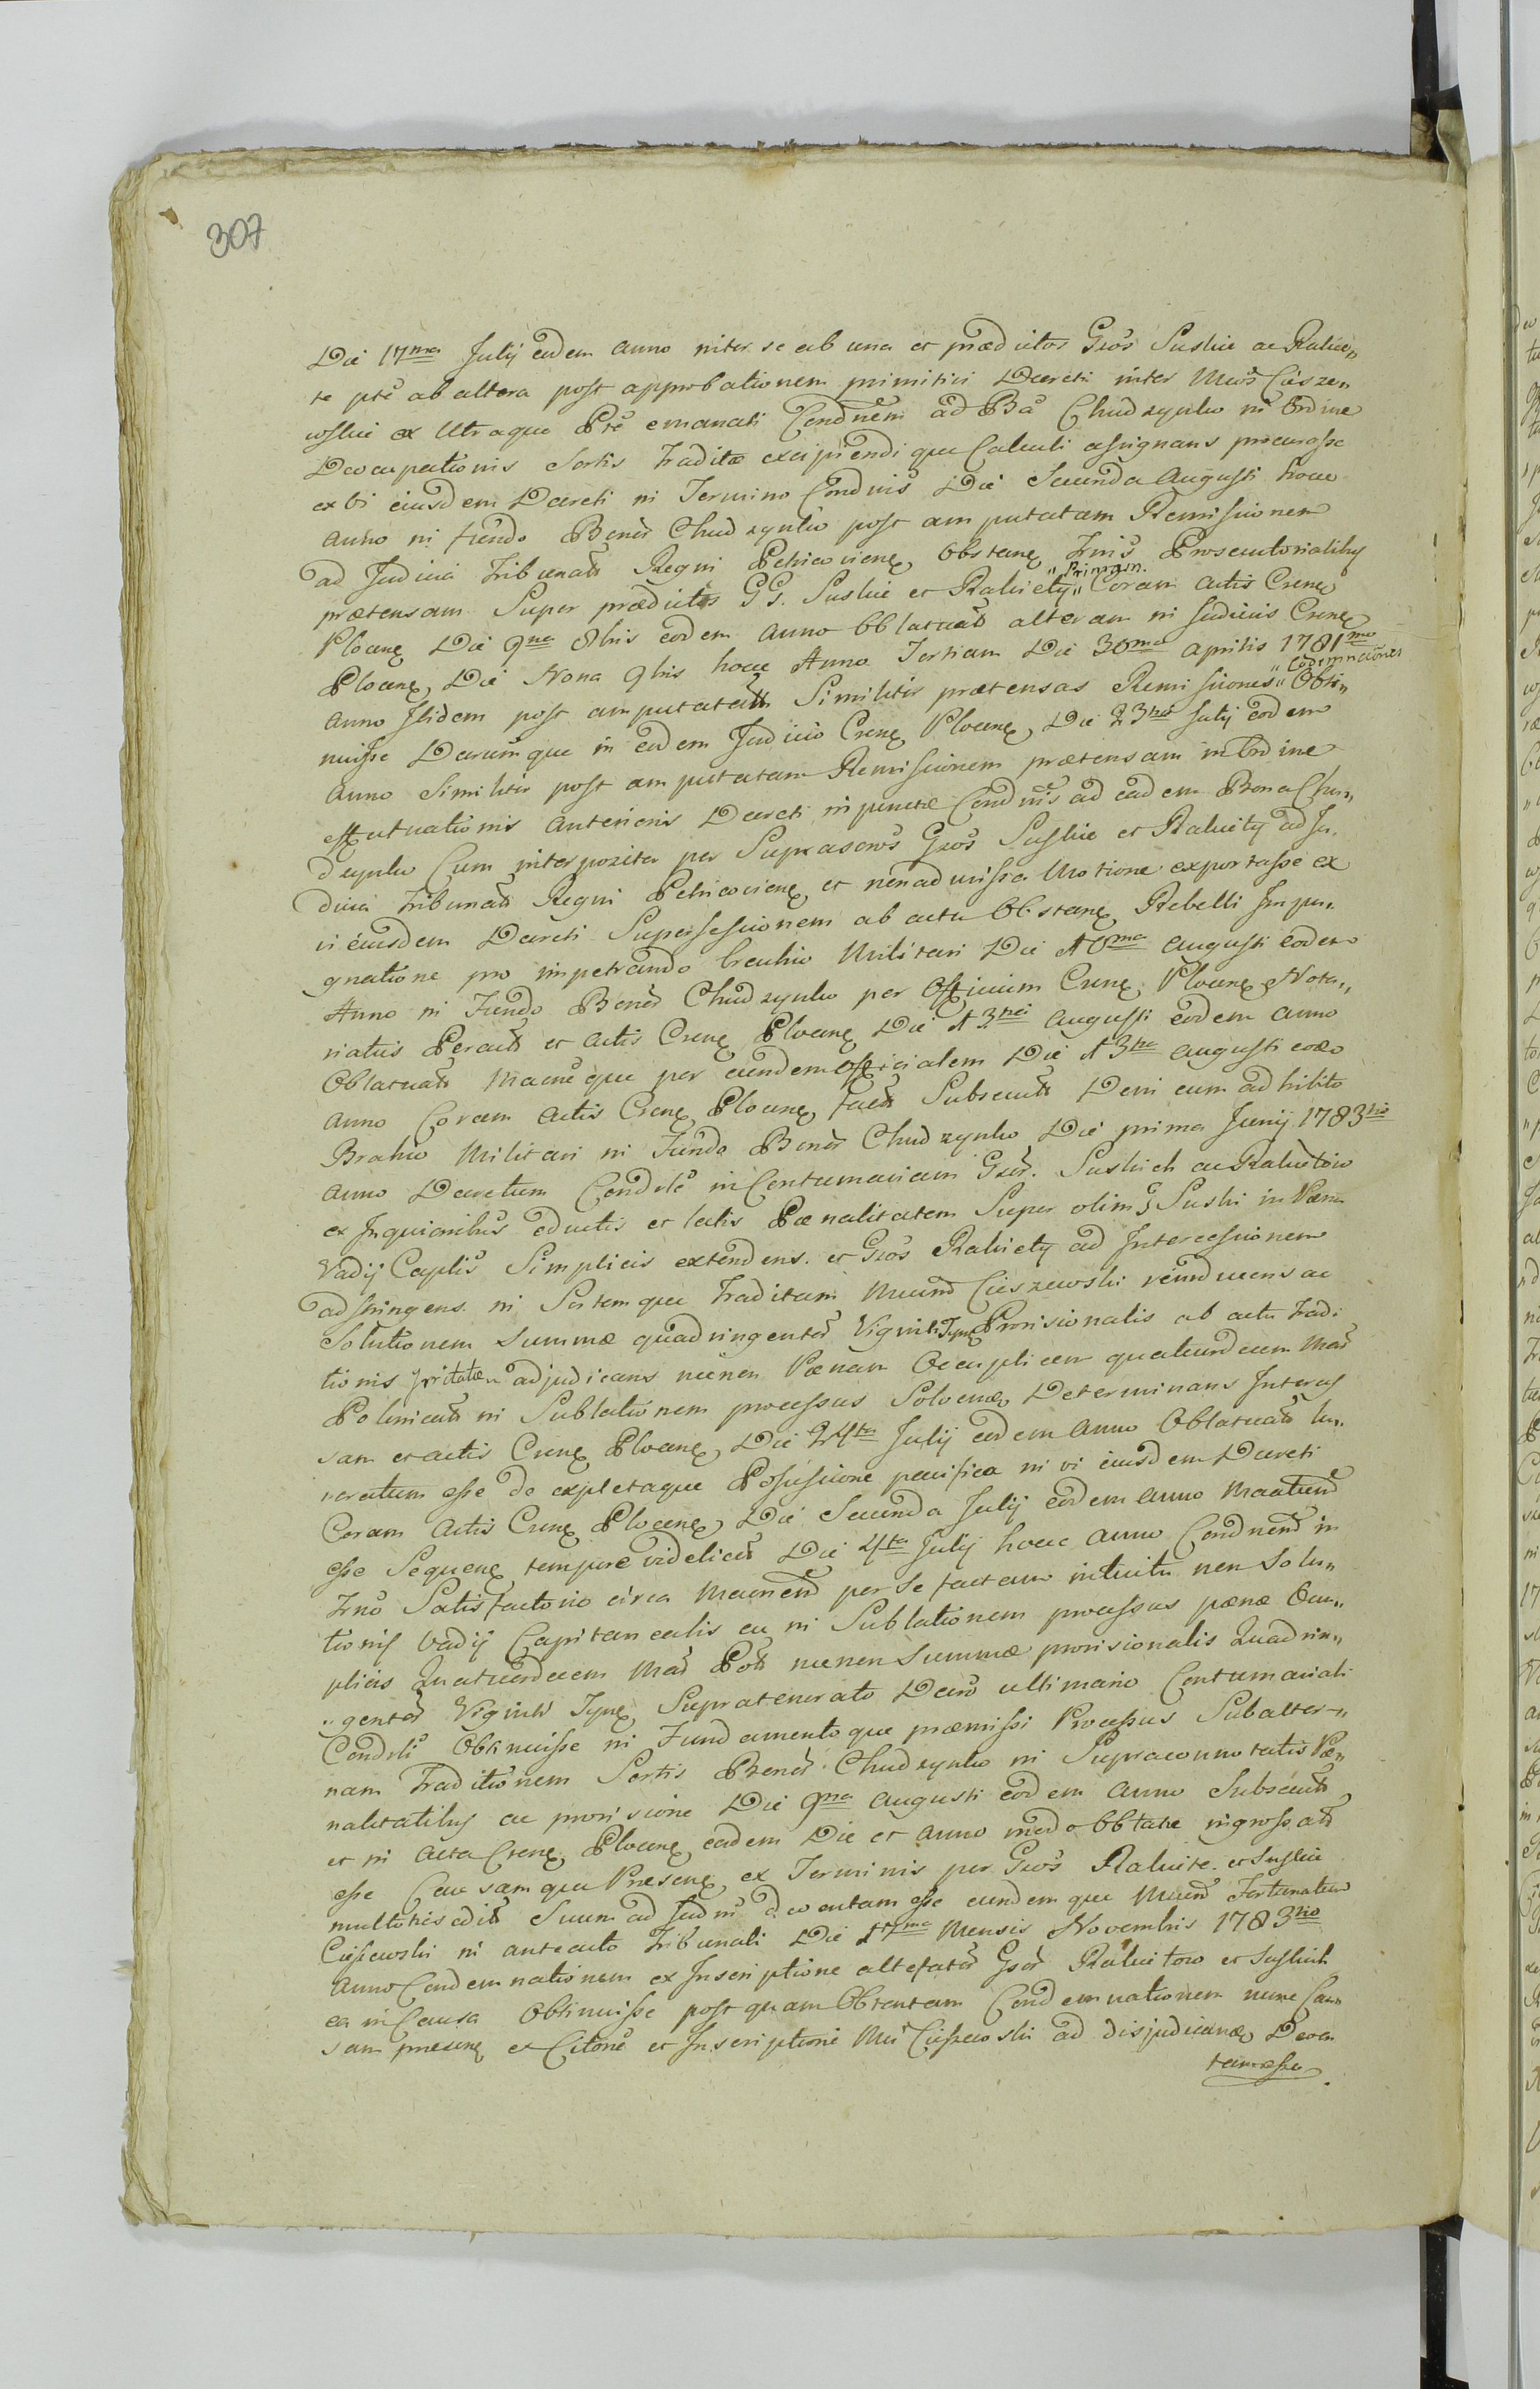 307
Die 17ma Julij eodem anno inter se ab una et prædictos Gsos Suskie ac Rakie„
te pte ab altera post approbationem primitivi Decreti inter Mcos Cieszew„
wskie ex Utraque Pte emanati Condnem ad Ba Chudzynko in Ordine
Deocupationis Sortis traditæ excipiendique Calculi assignans processe
ex vi eiusdem Decreti in Termino Condnis Die Secunda Augusti hocce
anno in fundo Bonor Chudzynko post amputatam Remissionem
ad Judicia Tribunalis Regni Petricovien Obstan Trnis Prosecutorialibus
prætensam Super prædictos GG. Suskie et Rakiety „Primam„ Coram Actis Cren
Plocen Die 9na 8bris eodem anno Oblatuatis alteram in Judiciis Cren
Plocen, Die Nona 9bris hocce Anno Tertiam Die 30ma Aprilis 1781mo
anno Ibidem post amputatam Similiter prætensas Remissiones „Codemnaõnes„ Obti„
nuisse Darumque in eodem Judicio Cren Plocen, Die 23tia Julij eodem
anno Similiter post amputatam Remissionem prætensam in Ordine
effectuationis anterioris Decreti in puncto Condnis ad eadem Bona Chu„
dzynko Cum interposita per Suprascros Gsos Suskie et Rakiety ad Ju„
dicia Tribunalis Regni Petricovien et non admissa Motione exportasse ex
vi eiusdem Decreti Supersessionem ab actu Obstan Rebelli Impu„
gnatione pro impetrando brachio Militari Die 10ma Augusti eodem
Anno in Fundo Bonor Chudzynko per Officium Cren Plocen Nota„
riatus Peractis et Actis Cren Plocen Die 13tia Augusti eodem anno
Oblatuatis Macneque per eundem officialem Die 13tia Augusti eodo
anno Coram Actis Cren Plocen, factis Subsecutis Deni cum adhibito
Brahio Militari in Fundo Bonor Chudzynko Die prima Junij 1783tio
anno Decretum Condrle in Contumaciam Gsor. Suskich ac Rakietow
ex Inquionibus eductis et latis Pœnalitatem Super olim G Suski in Pœna
Vadij Caplis Simplicis extendens. et Gsos Rakiety ad Intercessionem
adstringens in Sortemque Traditam Mcum Cieszewski reinducens ac
Solutionem Summæ quadringentor Viginti Tynf Provisionalis ab actu tradi
tionis „ adjudicans necnon Pœnam Occuplicem quatuordecem Mar
Polonicalis in Sublationem processus Solvend Determinans Interces
sam et actis Cren Plocen, Die 24ta Julij eodem anno Oblatuatis lu„
cratum esse de expletaque Possessione pacifica in vi eiusdem Decreti
Coram Actis Cren Plocen, Die Secunda Julij eodem anno Macatum
esse Sequen tempore videlicet Die 4ta Julij hocce anno Condnem in
Trno Satisfactorio circa Macnem per Se factam intuitu non Solu„
tionis Vadij Capitanealis ac in Sublationem processus pœnæ Occu„
plicis Quatuordecem Mar Pol necnon Summæ provisionalis Quadrin„
„gentor Viginti Tynf Supratenorato Decro ultimario Contumaciali
Condrli Obtinuisse in Fundamentoque præmissi Processus Subalter„
nam Traditionem Sortis Bonor Chudzynko in Supraconnotatis Pœ„
nalitatibus ac provisione Die 9na Augusti eodem anno Subsecutis
et in Acta Cren Plocen eadem Die et anno modo Oblatæ ingrossatis
esse Causamque Præsen ex Terminis per Gsos Rakiete. et Suskie
mulotiesedit Suum ad Judm devoctam esse eundemque Mcum Fortunatum
Ciesiewski in anteacto Tribunali Die 17ma Mensis Novembris 1783tio
anno Condemnationem ex Inscriptione altefator Gsor Rakietow et Suskich
ea in Causa Obtinuisse post quam Obtentam Condemnationem nunc Cau„
sam præsen ex Citone et Inscriptione Mci Cieszewski ad disjudicand Devo
tamesse